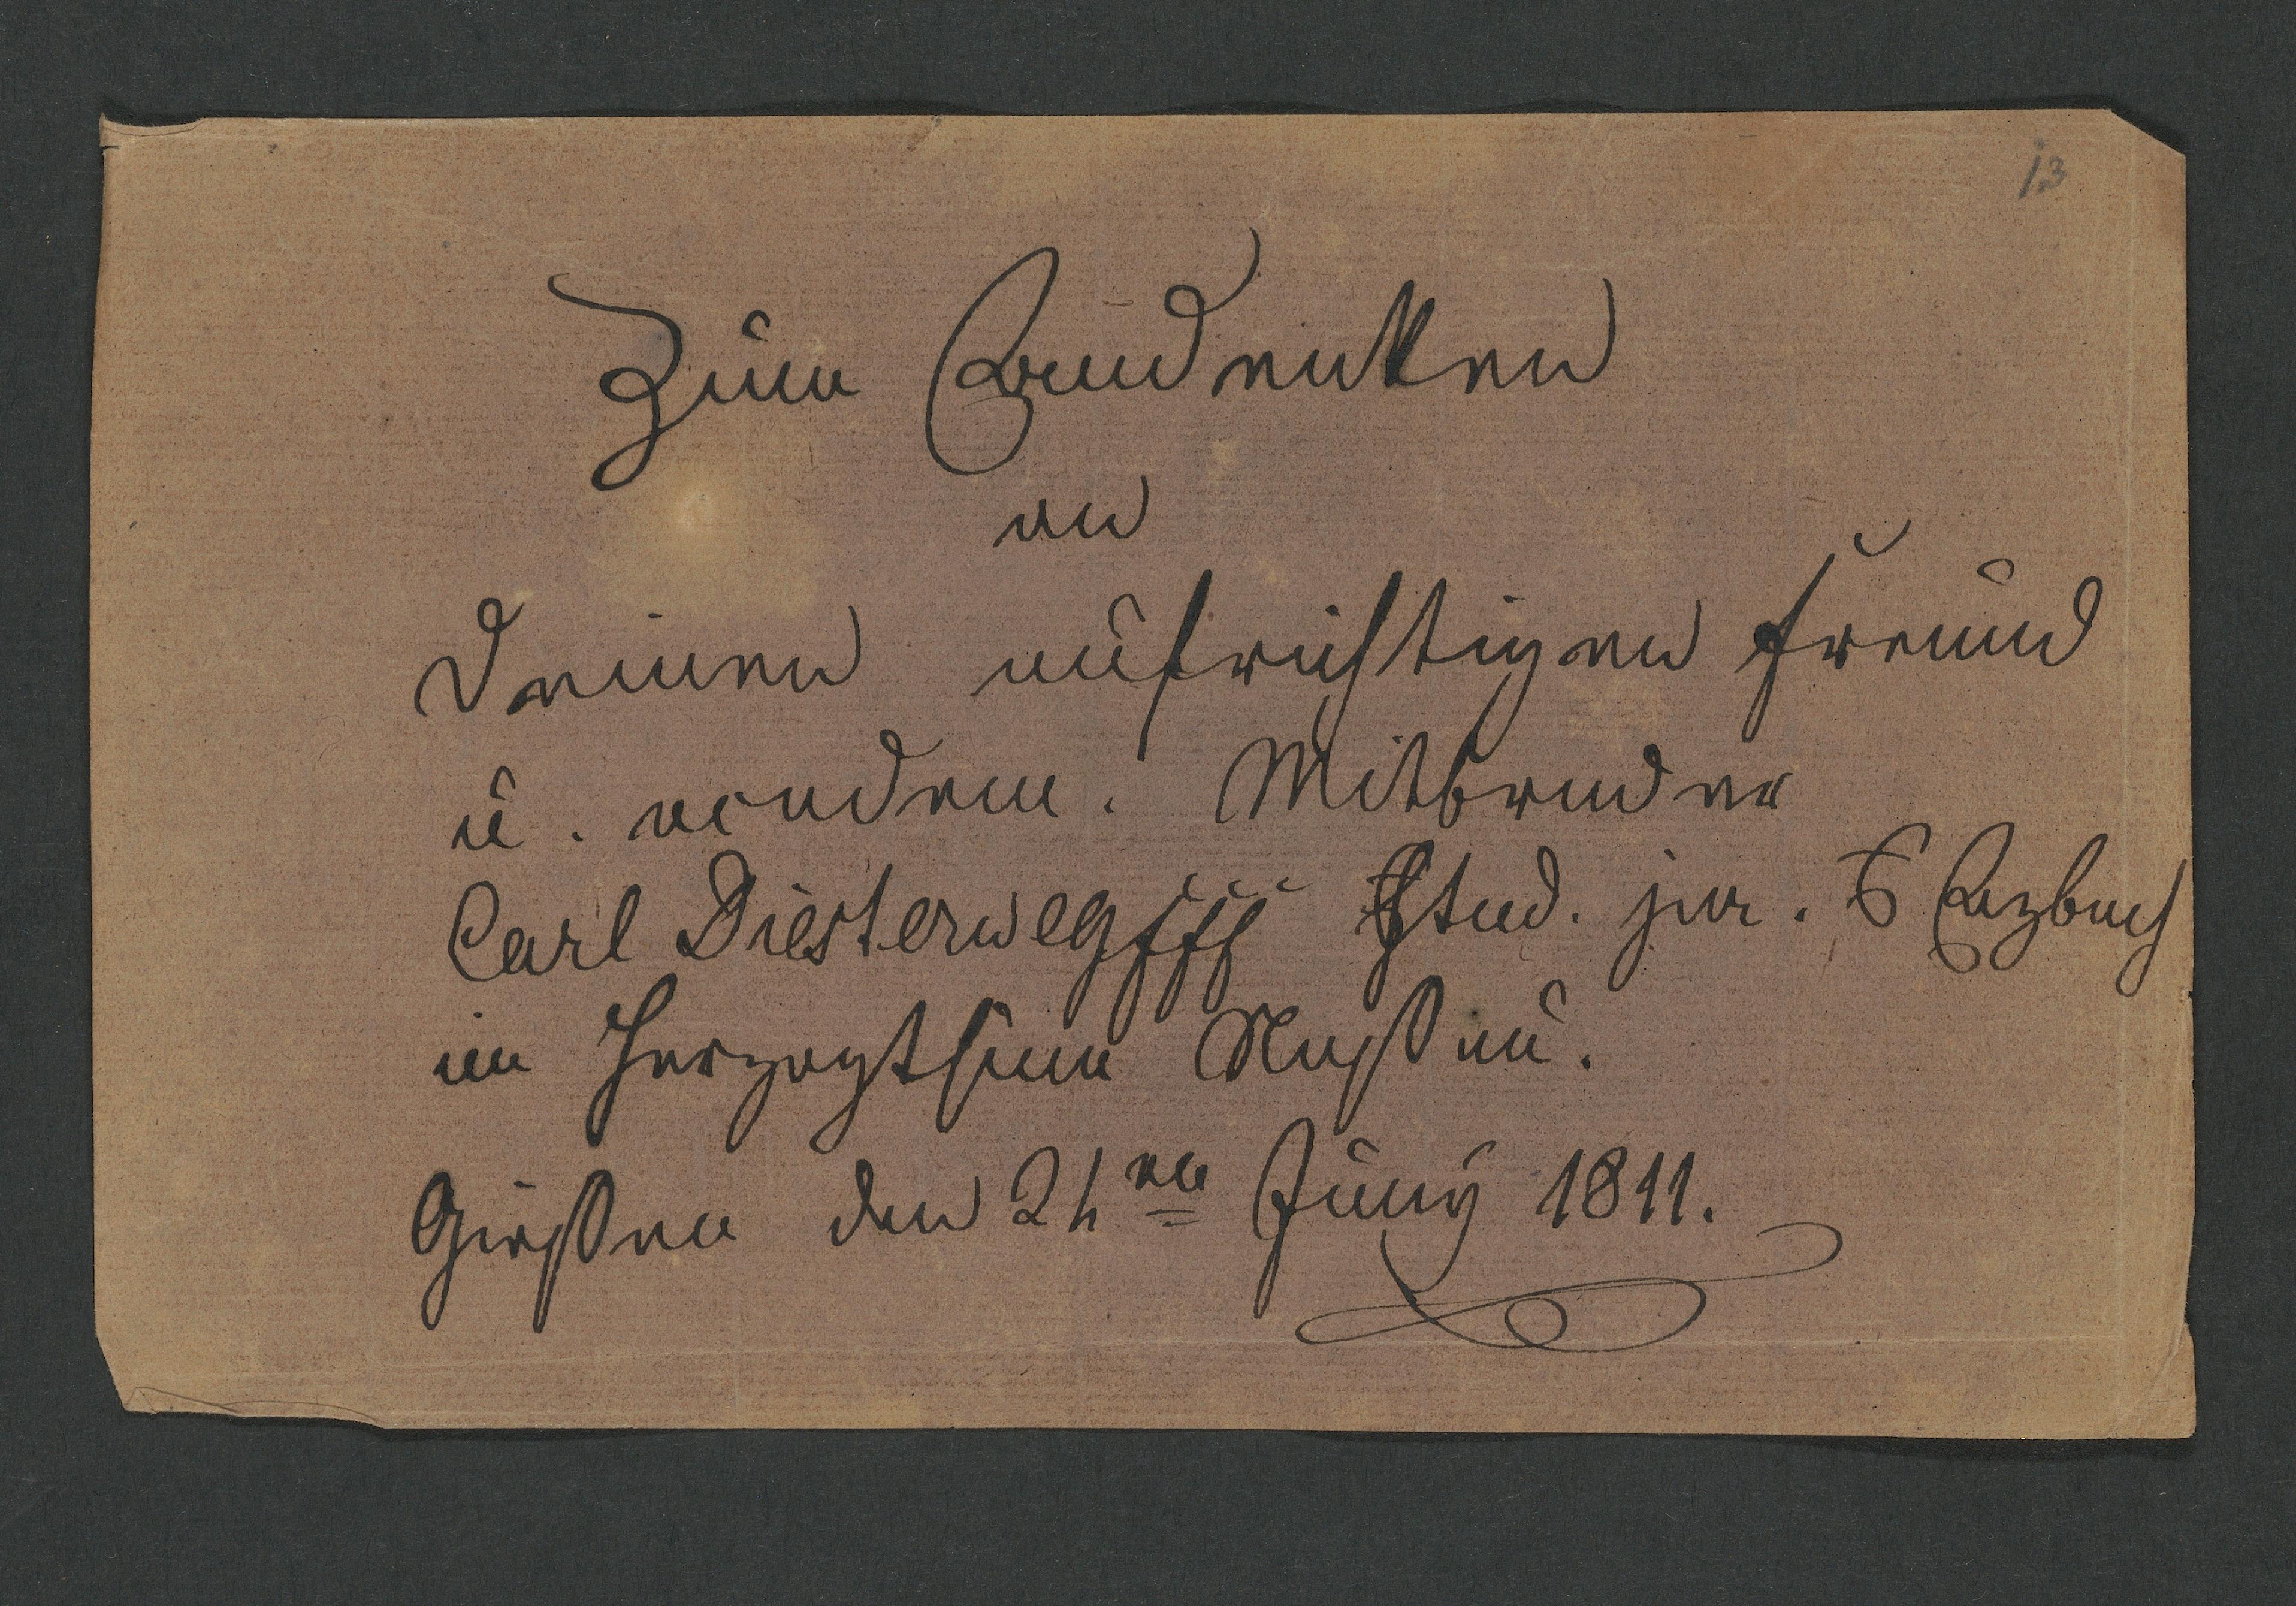 13
Zum Andenken
an
Deinen aufrichtigen Freund
u. academ. Mitbruder
Carl Diesterweg Stud. jur.
im Herzogthum Nassau.
Gießen den 24ten Juny 1811.